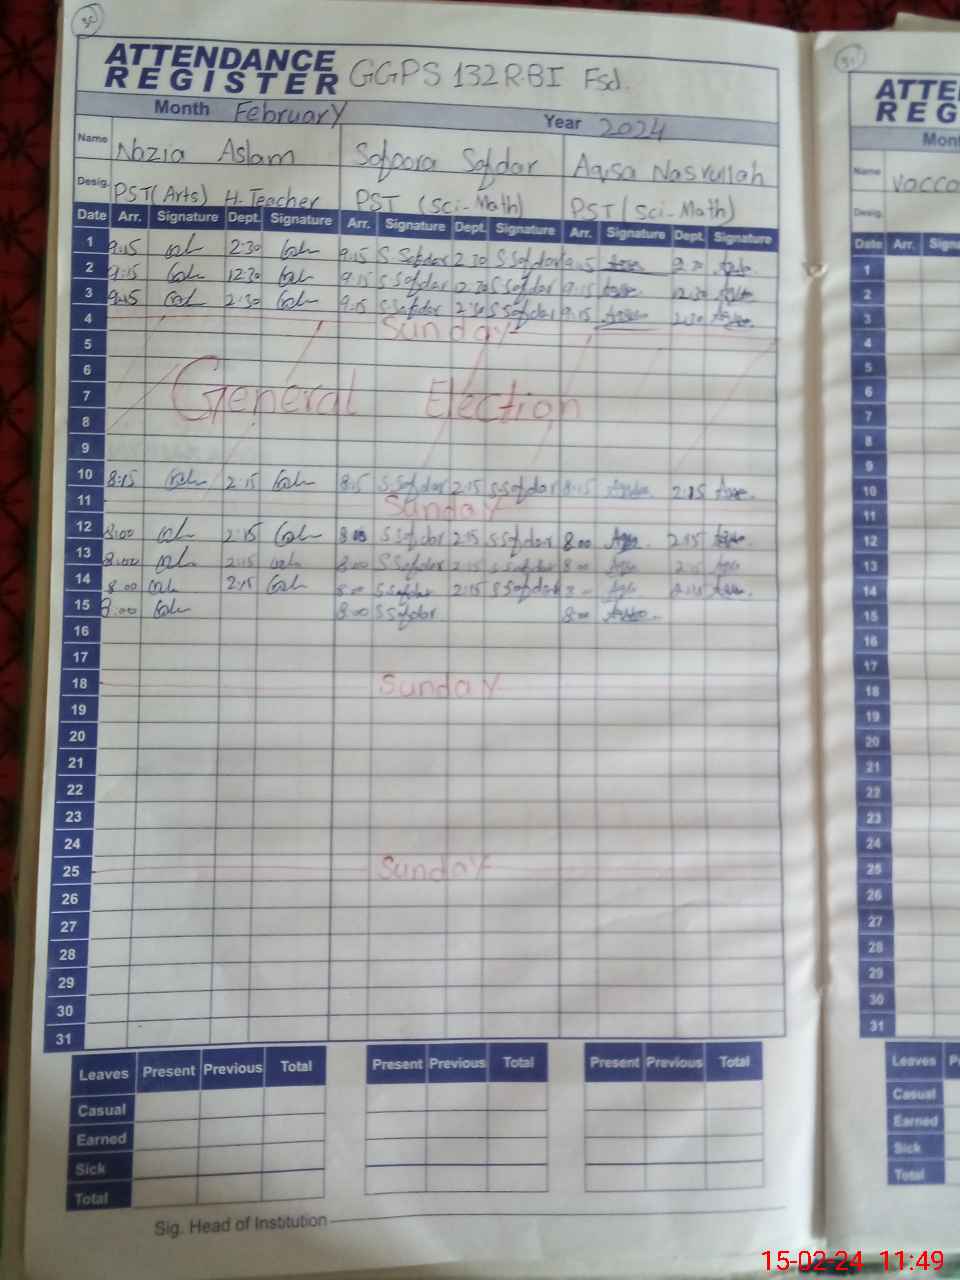 30
ATTENDANCE
REGISTER GGPS 132 RBI Fsd.
Month February Year 2024
Name Nazia Aslam Safoora Safdar Aqsa Nasrullah
Desig. PST (Arts) H. Teacher PST (Sci-Math) PST (Sci-Math)
Date Arr. Signature Dept. Signature Arr. Signature Dept. Signature Arr. Signature Dept. Signature
1 9:15 2:30 9:15 S Safdar 2:30 S Safdar 9:15
2 9:15 12:30 9:15 S Safdar 12:30 S Safdar 9:15 12:30
3 9:15 2:30 9:15 S Safdar 2:30 S Safdar 9:15 2:30
4 Sunday
5
6
7 General Election
8
9
10 8:15 2:15 8:15 S Safdar 2:15 S Safdar 8:15 2:15
11 Sunday
12 8:00 2:15 8:00 S Safdar 2:15 S Safdar 8:00 2:15
13 8:00 2:15 8:00 S Safdar 2:15 S Safdar 8:00 2:15
14 8:00 2:15 8:00 S Safdar 2:15 S Safdar 2:15
15 8:00 8:00 S Safdar 8:00
16
17
18 Sunday
19
20
21
22
23
24
25 Sunday
26
27
28
29
30
31
Leaves Present Previous Total Present Previous Total Present Previous Total
Casual
Earned
Sick
Total
Sig. Head of Institution
31
ATTE
REG
Mont
Name Vacca
Desig.
Date Arr. Signa
1
2
3
4
5
6
7
8
9
10
11
12
13
14
15
16
17
18
19
20
21
22
23
24
25
26
27
28
29
30
31
Leaves P
Casual
Earned
Sick
Total
15-02-24 11:49